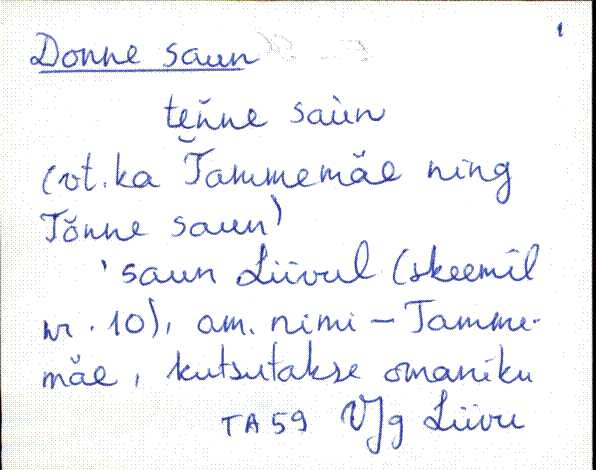 1
Donne saun
teňne saùn
(vt. ka Tammemäe ning
Tõnne saun)
'saun Liivul (skeemil
nr. 10), am. nimi – Tamme-
mäe, kutsutakse omaniku
TA59 VJg Liivu